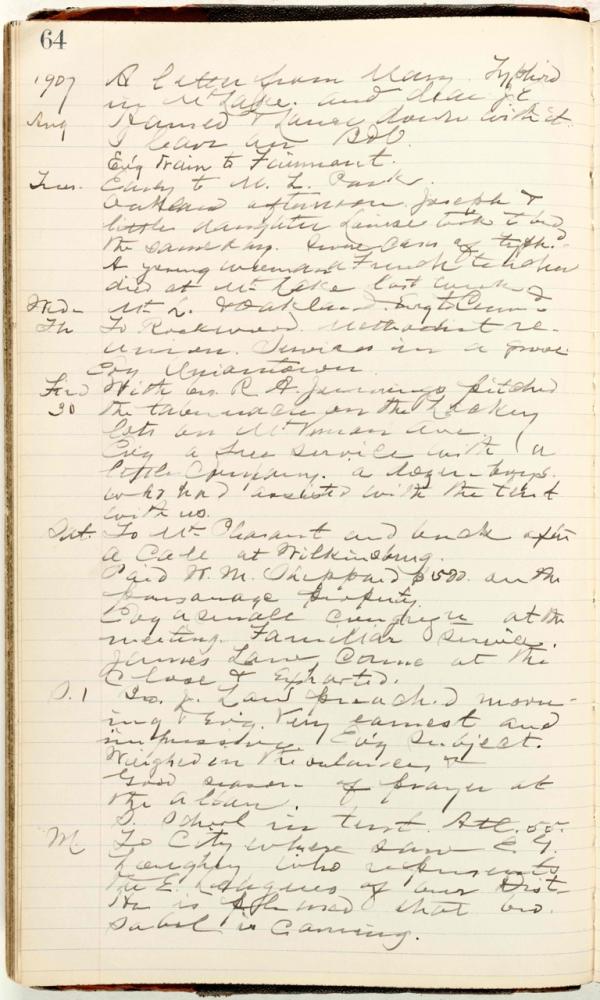 64
1907 A letter from Mary. Typhoid
in Mt Lake. and dear J. E.
Aug Harned & Laura down with it.
I leave on B&O.
Ev'g train to Fairmont.
Tues. Early to M. L. Park.
Oakland afternoon. Joseph &
little daughter Louise took to bed
the same day. Some cases of typh.
A young woman a French teacher
died at Mt Lake last week.
Wed- Mt L. & Oakland. Ev'g to
Th To Rockwood. Methodist re-
union. Services in a grove.
Ev'g Uniontown.
Fri With bro. R. A. Jennings pitched
30 the tabernacle on the
lots on Ave.
Ev'g a service with a
little company. a dozen boys
who had assisted with the tent
with us.
Sat. To Mt Pleasant and back after
a call at Wilkinsburg.
Paid W. M. Sheppard $500. on the
parsonage property.
Ev'g a small congreg'n at the
meeting. Familiar service.
James Law came at the
close & exhorted.
S. 1 Bro. J. Law preached morn-
ing & Ev'g. Very earnest and
impressive. Ev'g subject.
Weighed in the balances, &
Good season of prayer at
the altar.
S. School in tent. Att. 55.
M. To City where saw E. G.
who represents
the E. Leagues of our Dist-
He is pleased that bro.
is coming.